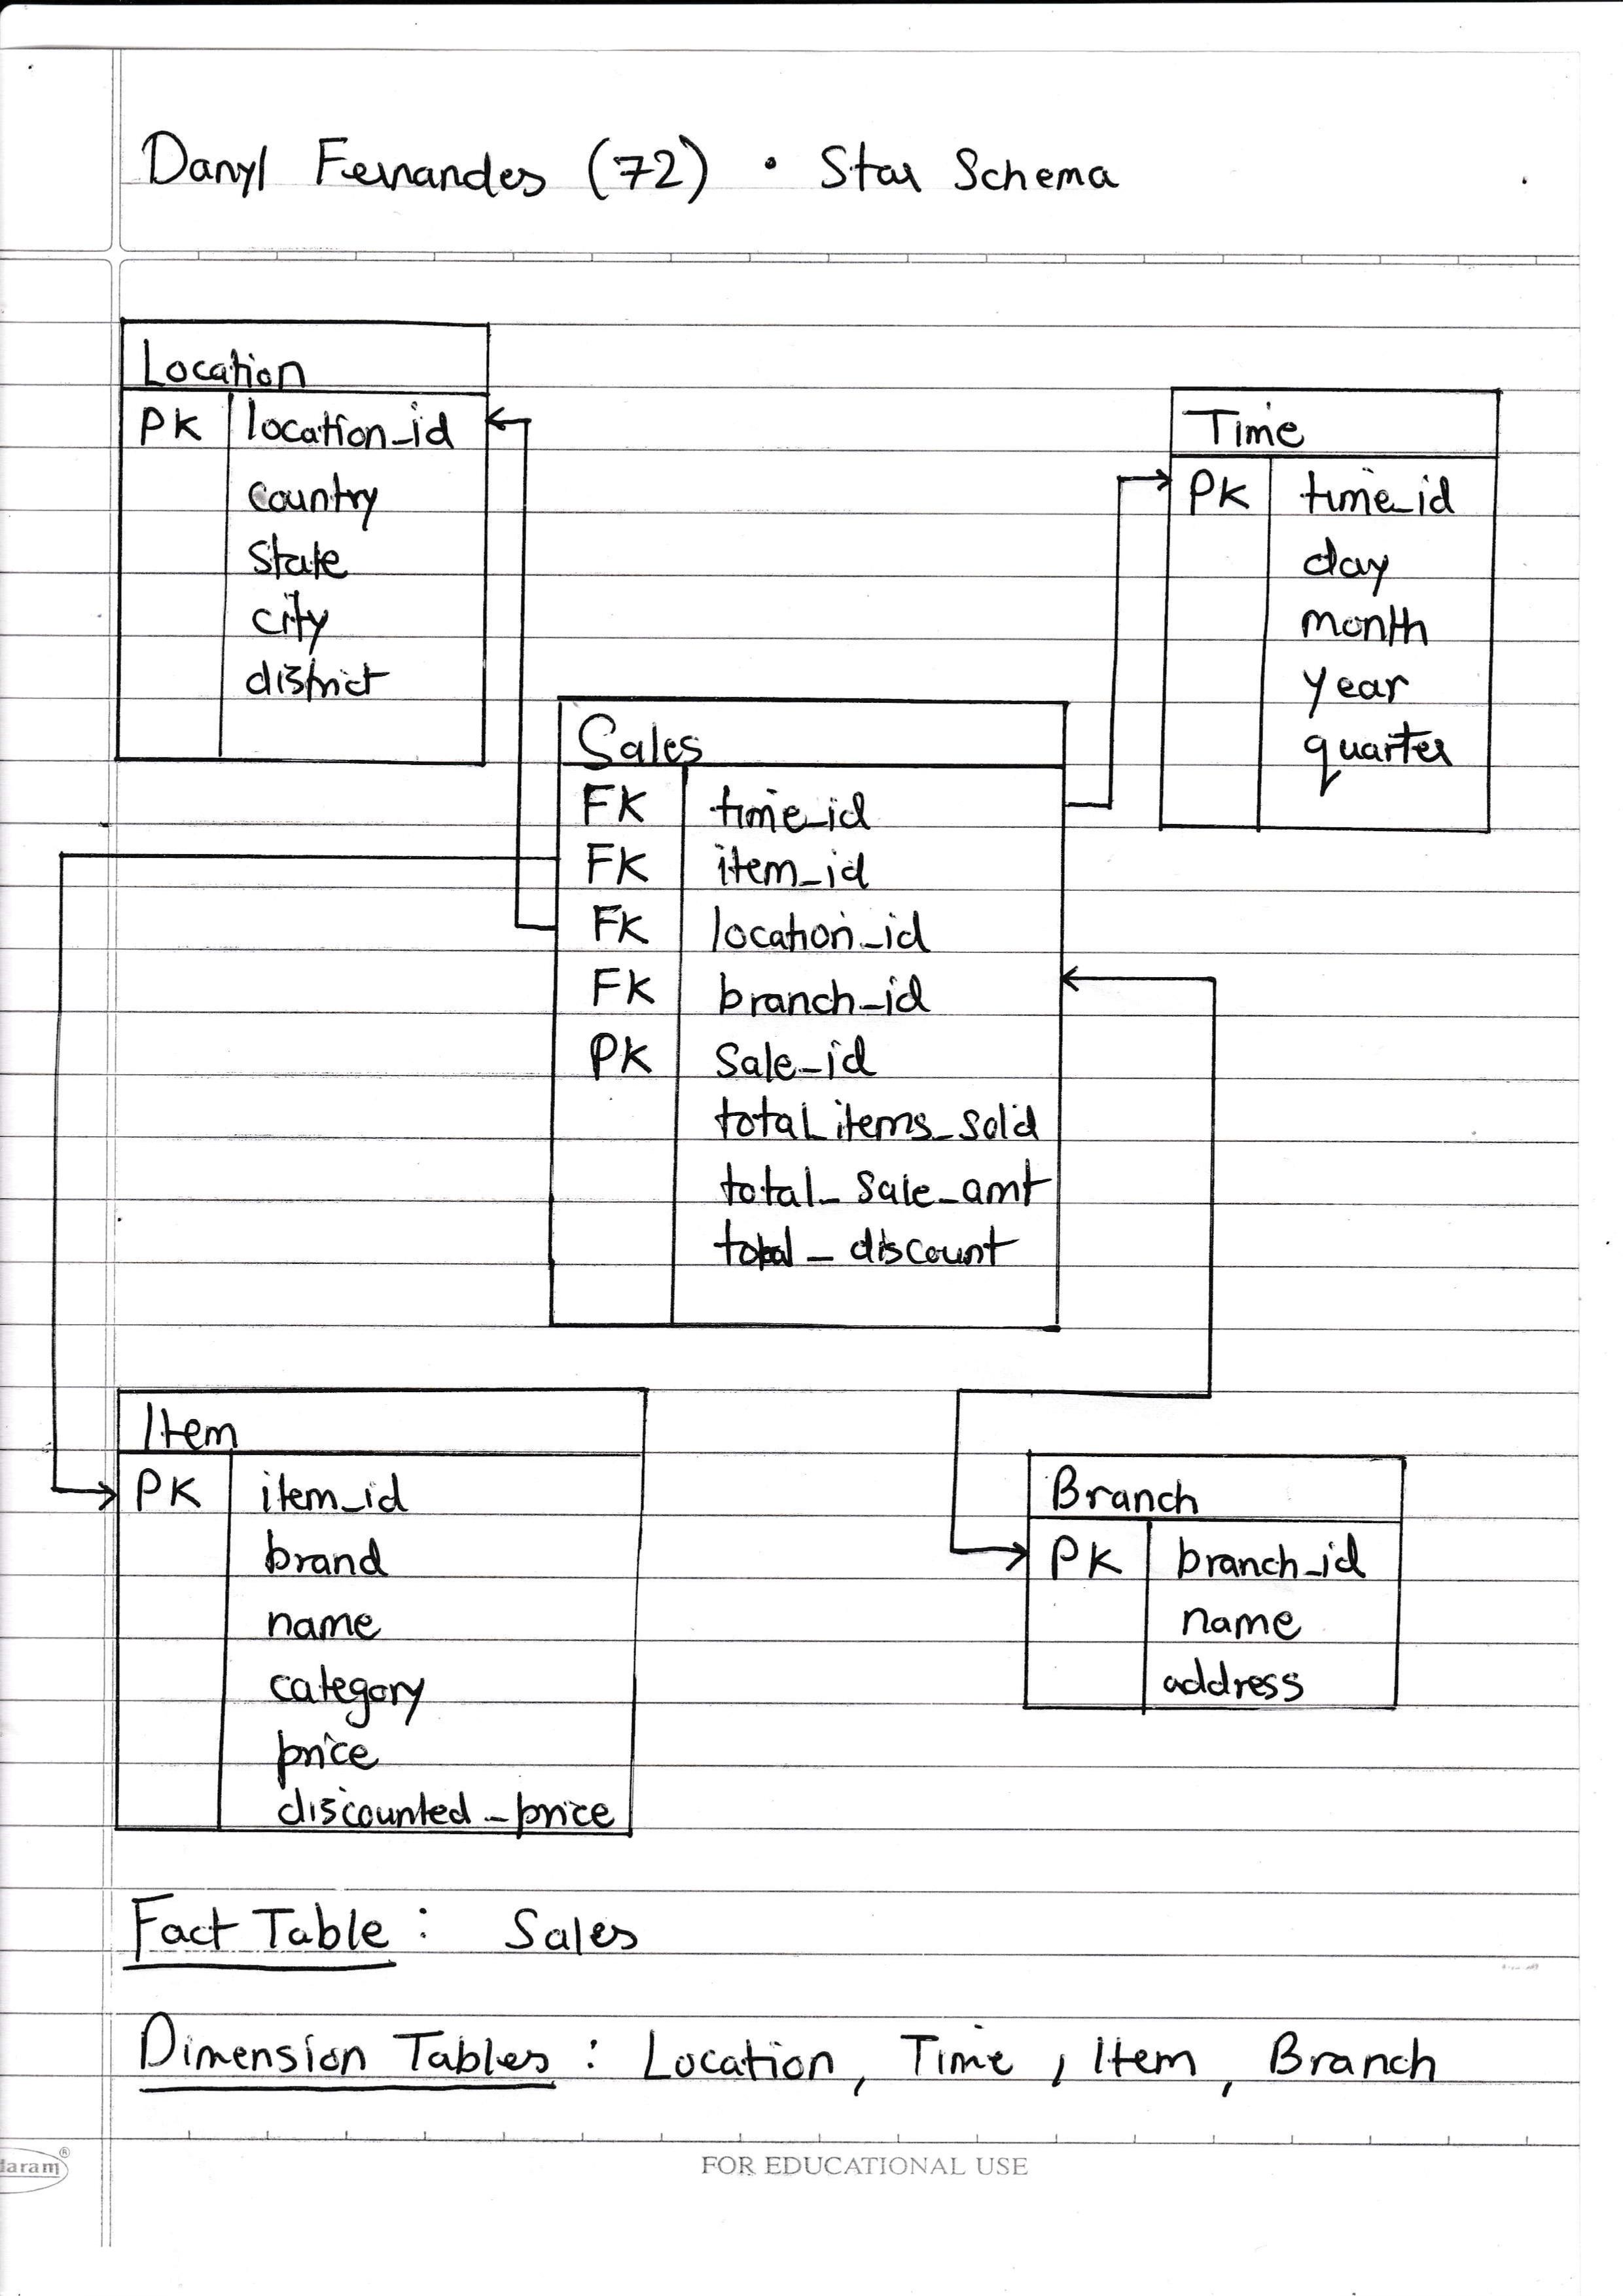 Danyl Fernandes (72) • Star Schema
Location
PK location_id
country
state
city
district
Time
PK time_id
day
month
year
quarter
Sales
FK time_id
FK item_id
FK location_id
FK branch_id
PK sale_id
total_items_sold
total_sale_amt
total_discount
Item
PK item_id
brand
name
category
price
discounted_price
Branch
PK branch_id
name
address
Fact Table : Sales
Dimension Tables : Location, Time, Item, Branch
daram®
FOR EDUCATIONAL USE